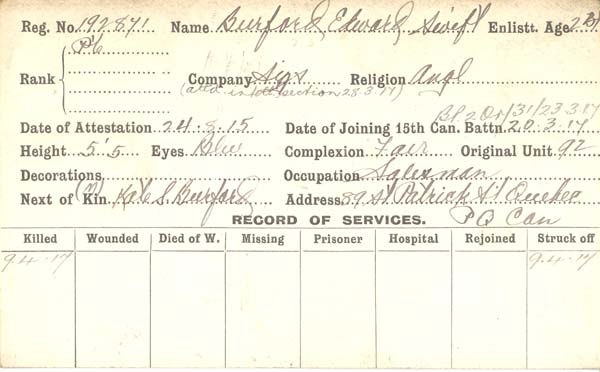 Reg. No. 192871 Name Burford, Edward Swift Enlistt. Age
Pte
Rank Company Sigs Religion Angl
(attd. section 28.3.17)
Bf. 2 Or/31/23.3.17
Date of Attestation 24.8.15 Date of Joining 15th Can. Battn 20.3.17
Height 5'5 Eyes Blue Complexion Fair Original Unit 92
Decorations Occupation Salesman
Next of Kin (M) Kate S. Burford Address 89 St Patrick St Quebec
RECORD OF SERVICES. PQ Can
Killed Wounded Died of W. Missing Prisoner Hospital Rejoined Struck off
9.4.17 9.4.17